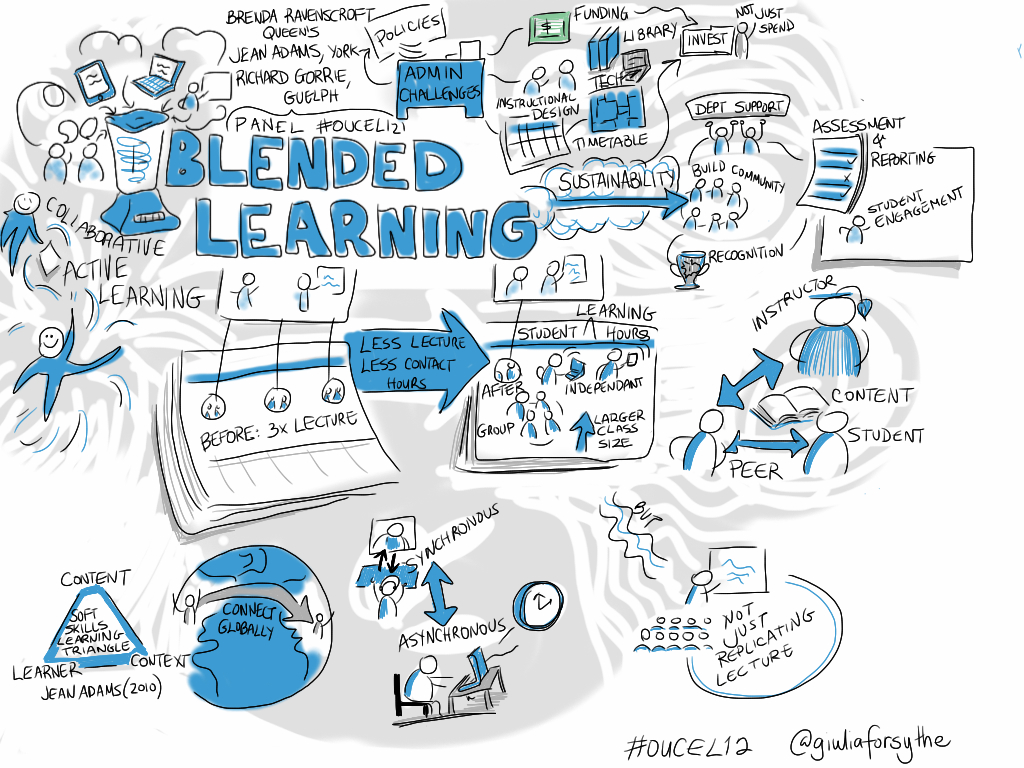 BRENDA RAVENSCROFT
QUEEN'S
JEAN ADAMS, YORK
RICHARD GORRIE,
GUELPH
PANEL #OUCEL121
BLENDED
LEARNING
POLICIES
ADMIN
CHALLENGES
$
FUNDING
LIBRARY
TECH
INSTRUCTIONAL
DESIGN
TIMETABLE
INVEST
NOT JUST
SPEND
DEPT SUPPORT
SUSTAINABILITY
BUILD COMMUNITY
RECOGNITION
ASSESSMENT
&
REPORTING
STUDENT
ENGAGEMENT
COLLABORATIVE
ACTIVE
LEARNING
BEFORE: 3x LECTURE
LESS LECTURE
LESS CONTACT
HOURS
LEARNING
STUDENT ʌ HOURS
AFTER
INDEPENDANT
GROUP
LARGER
CLASS
SIZE
INSTRUCTOR
CONTENT
STUDENT
PEER
CONTENT
SOFT
SKILLS
LEARNING
TRIANGLE
LEARNER
CONTEXT
JEAN ADAMS (2010)
CONNECT
GLOBALLY
SYNCHRONOUS
ASYNCHRONOUS
BUT
NOT
JUST
REPLICATING
LECTURE
#OUCEL12
@giuliaforsythe